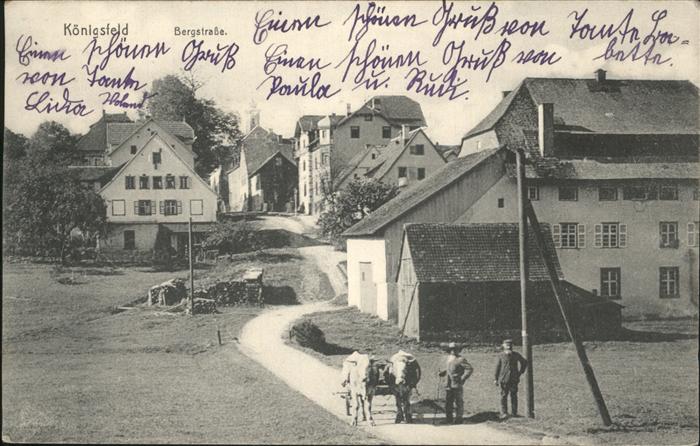 Königsfeld
Bergstraße.
Einen schönen Gruß
von Tante
Lidia
Einen schönen Gruß von Tante Ba-
bette.
Einen schönen Gruß von
Paula u. Rudi.